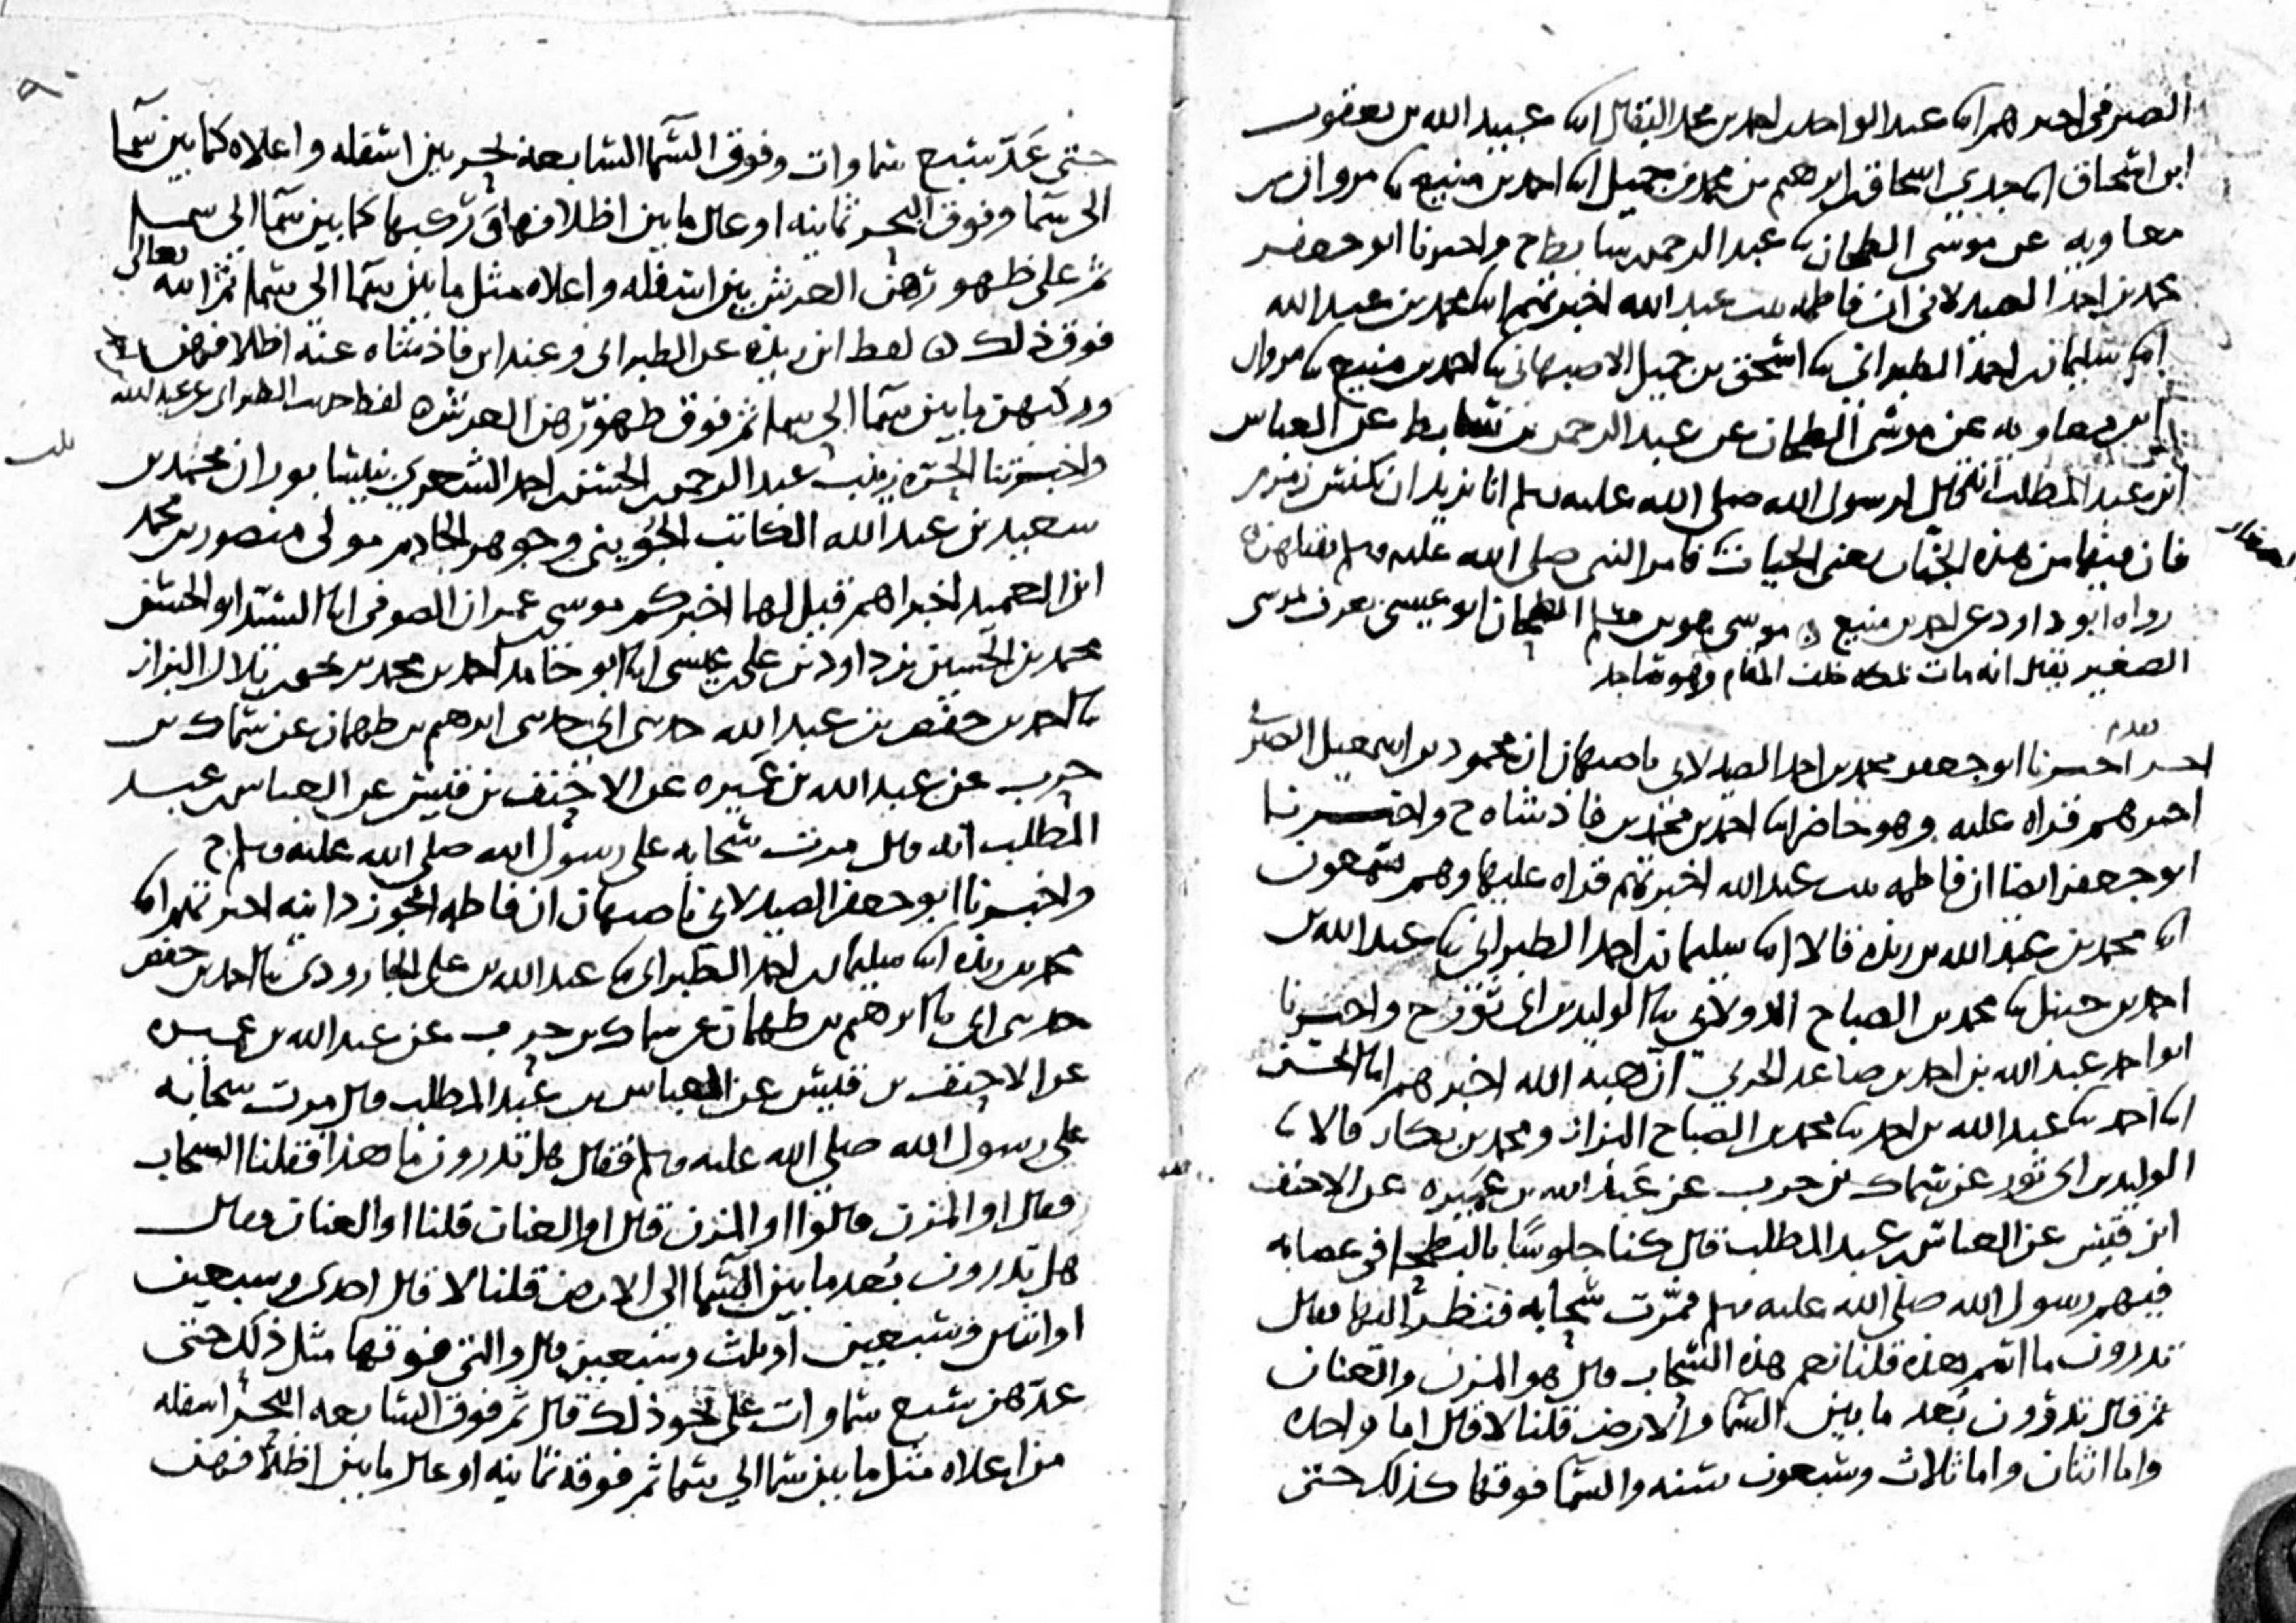 الصيرفي اخبرهم ابنا عبد الواحد بن احمد بن محمد البقال ابنا عبيد الله بن يعقوب
ابن اسحاق ابنا جدي اسحاق بن ابرهيم بن محمد بن جميل ابنا احمد بن منيع ثنا مروان بن
معاويه عن موسى الطحان ثنا عبد الرحمن بن سابط ح واخبرنا ابو جعفر
محمد بن احمد الصيدلاني ان فاطمه بنت عبد الله اخبرتهم ابنا محمد بن عبد الله
ابنا سليمان بن احمد الطبراني ثنا اسحق بن جميل الاصبهاني ثنا احمد بن منيع ثنا مروان
ابن معاويه عن موسى الطحان عن عبد الرحمن بن سابط عن العباس
ابن عبد المطلب انه قال لرسول الله صلى الله عليه وسلم انا نريد ان نكنس زمزم
فان فيها من هذه الجنان يعني الحيات فامر النبي صلى الله عليه وسلم بقتلهن
رواه ابو داود عن احمد بن منيع ه موسى هو بن مسلم الطحان ابو عيسى يعرف بموسى
الصغير يقال انه مات بمكه خلف المقام وهو ساجد
اخبرنا ابو جعفر محمد بن احمد الصيدلاني باصبهان ان محمود بن اسمعيل الصيرفي
اخبرهم قراه عليه وهو حاضر ابنا احمد بن محمد بن فاذشاه ح واخبرنا
ابو جعفر ايضا ان فاطمه بنت عبد الله اخبرتهم قراه عليها وهم يسمعون
ابنا محمد بن عبد الله بن ريذه قالا ابنا سليمان بن احمد الطبراني ثنا عبد الله بن
احمد بن حنبل ثنا محمد بن الصباح الدولابي ثنا الوليد بن ابي ثور ح واخبرنا
ابو احمد عبد الله بن احمد بن صاعد الحربي ان هبه الله اخبرهم ابنا الحسن
ابنا احمد ثنا عبد الله بن احمد ثنا محمد بن الصباح البزاز ومحمد بن بكار قالا ثنا
الوليد بن ابي ثور عن سماك بن حرب عن عبد الله بن عميره عن الاحنف
ابن قيس عن العباس بن عبد المطلب قال كنا جلوسا بالبطحا في عصابه
فيهم رسول الله صلى الله عليه وسلم فمرت سحابه فنظر اليها فقال
تدرون ما اسم هذه قلنا نعم هذه السحاب قال هو المزن والعنان
ثم قال تدرون بعد ما بين السما والارض قلنا لا قال اما واحده
واما اثنان واما ثلاث وسبعون سنه والسما فوقها كذلك حتى
حتى عد سبع سماوات وفوق السما السابعه بحر بين اسفله واعلاه كما بين سما
الى سما وفوق البحر ثمانيه اوعال ما بين اظلافهن وركبهن كما بين سما الى سما
ثم على ظهورهن العرش بين اسفله واعلاه مثل ما بين سما الى سما ثم الله تعالى
فوق ذلك ه لفظ ابن ريذه عن الطبراني وعند ابن فاذشاه عنه اظلافهن
وركبهن ما بين سما الى سما ثم فوق ظهورهن العرش ه لفظ حديث الطبراني عن عبد الله
واخبرتنا الحره زينب عبد الرحمن الحسن احمد الشعري بنيسابور ان محمد بن
سعيد بن عبد الله الكاتب الجويني وجوهر الخادم مولى منصور بن محمد
ابن الحميد اخبراهم قيل لهما اخبركم موسى عمران الصوفي ابنا السيد ابو الحسن
محمد بن الحسين بن داود بن علي بن عيسى ابنا ابو حامد احمد بن محمد بن يحيى بن بلال البزاز
ثنا احمد بن حفص بن عبد الله حدثني ابي حدثني ابرهيم بن طهمان عن سماك بن
حرب عن عبد الله بن عميره عن الاحنف بن قيس عن العباس بن عبد
المطلب انه قال مرت سحابه على رسول الله صلى الله عليه وسلم ح
واخبرنا ابو جعفر الصيدلاني باصبهان ان فاطمه الجوزدانيه اخبرتهم ابنا
محمد بن ريذه ابنا سليمان بن احمد الطبراني ثنا عبد الله بن علي الجارودي ثنا احمد بن حفص
حدثني ابي ثنا ابرهيم بن طهمان عن سماك بن حرب عن عبد الله بن عميره
عن الاحنف بن قيس عن العباس بن عبد المطلب قال مرت سحابه
على رسول الله صلى الله عليه وسلم فقال هل تدرون ما هذا فقلنا السحاب
فقال او المزن قالوا او المزن قال او العنان قلنا او العنان فقال
هل تدرون بعد ما بين السما الى الارض قلنا لا قال احدى وسبعين
او اثنين وسبعين او ثلث وسبعين قال والتي فوقها مثل ذلك حتى
عدهن سبع سماوات على نحو ذلك قال ثم فوق السابعه البحر اسفله
من اعلاه مثل ما بين سما الى سما ثم فوقه ثمانيه اوعال ما بين اظلافهن